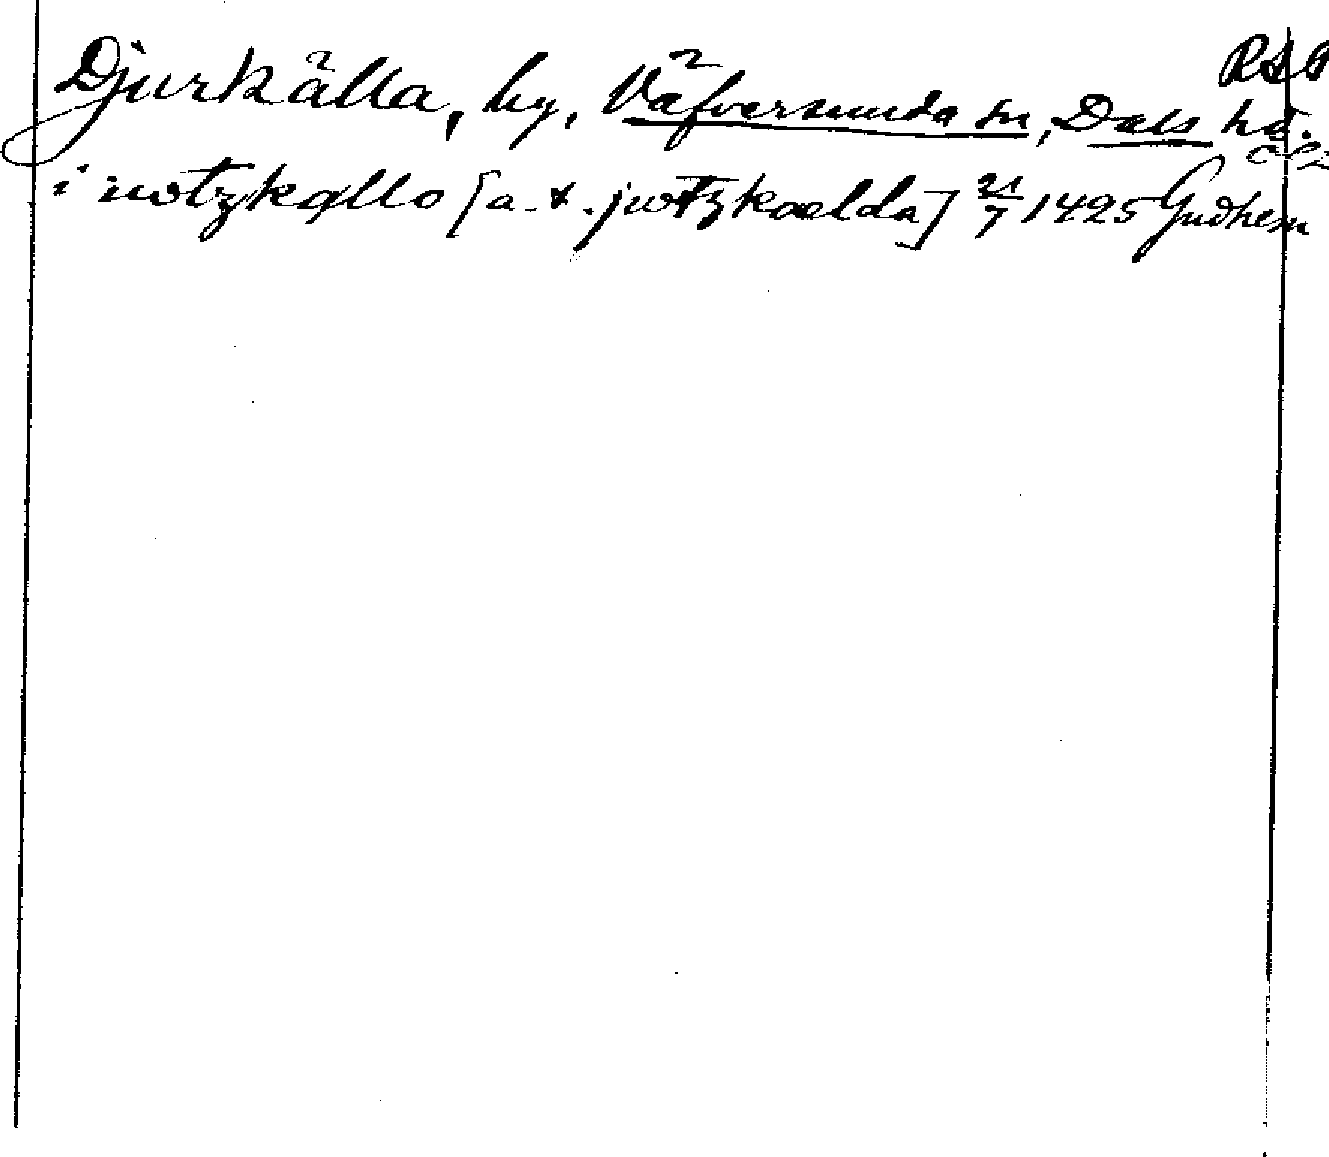 Djurkälla, by, Väfversunda sn, Dals hd.
i iwtzkællo [a. x. jwtzkaelda] 21/7 1425 Gudhem